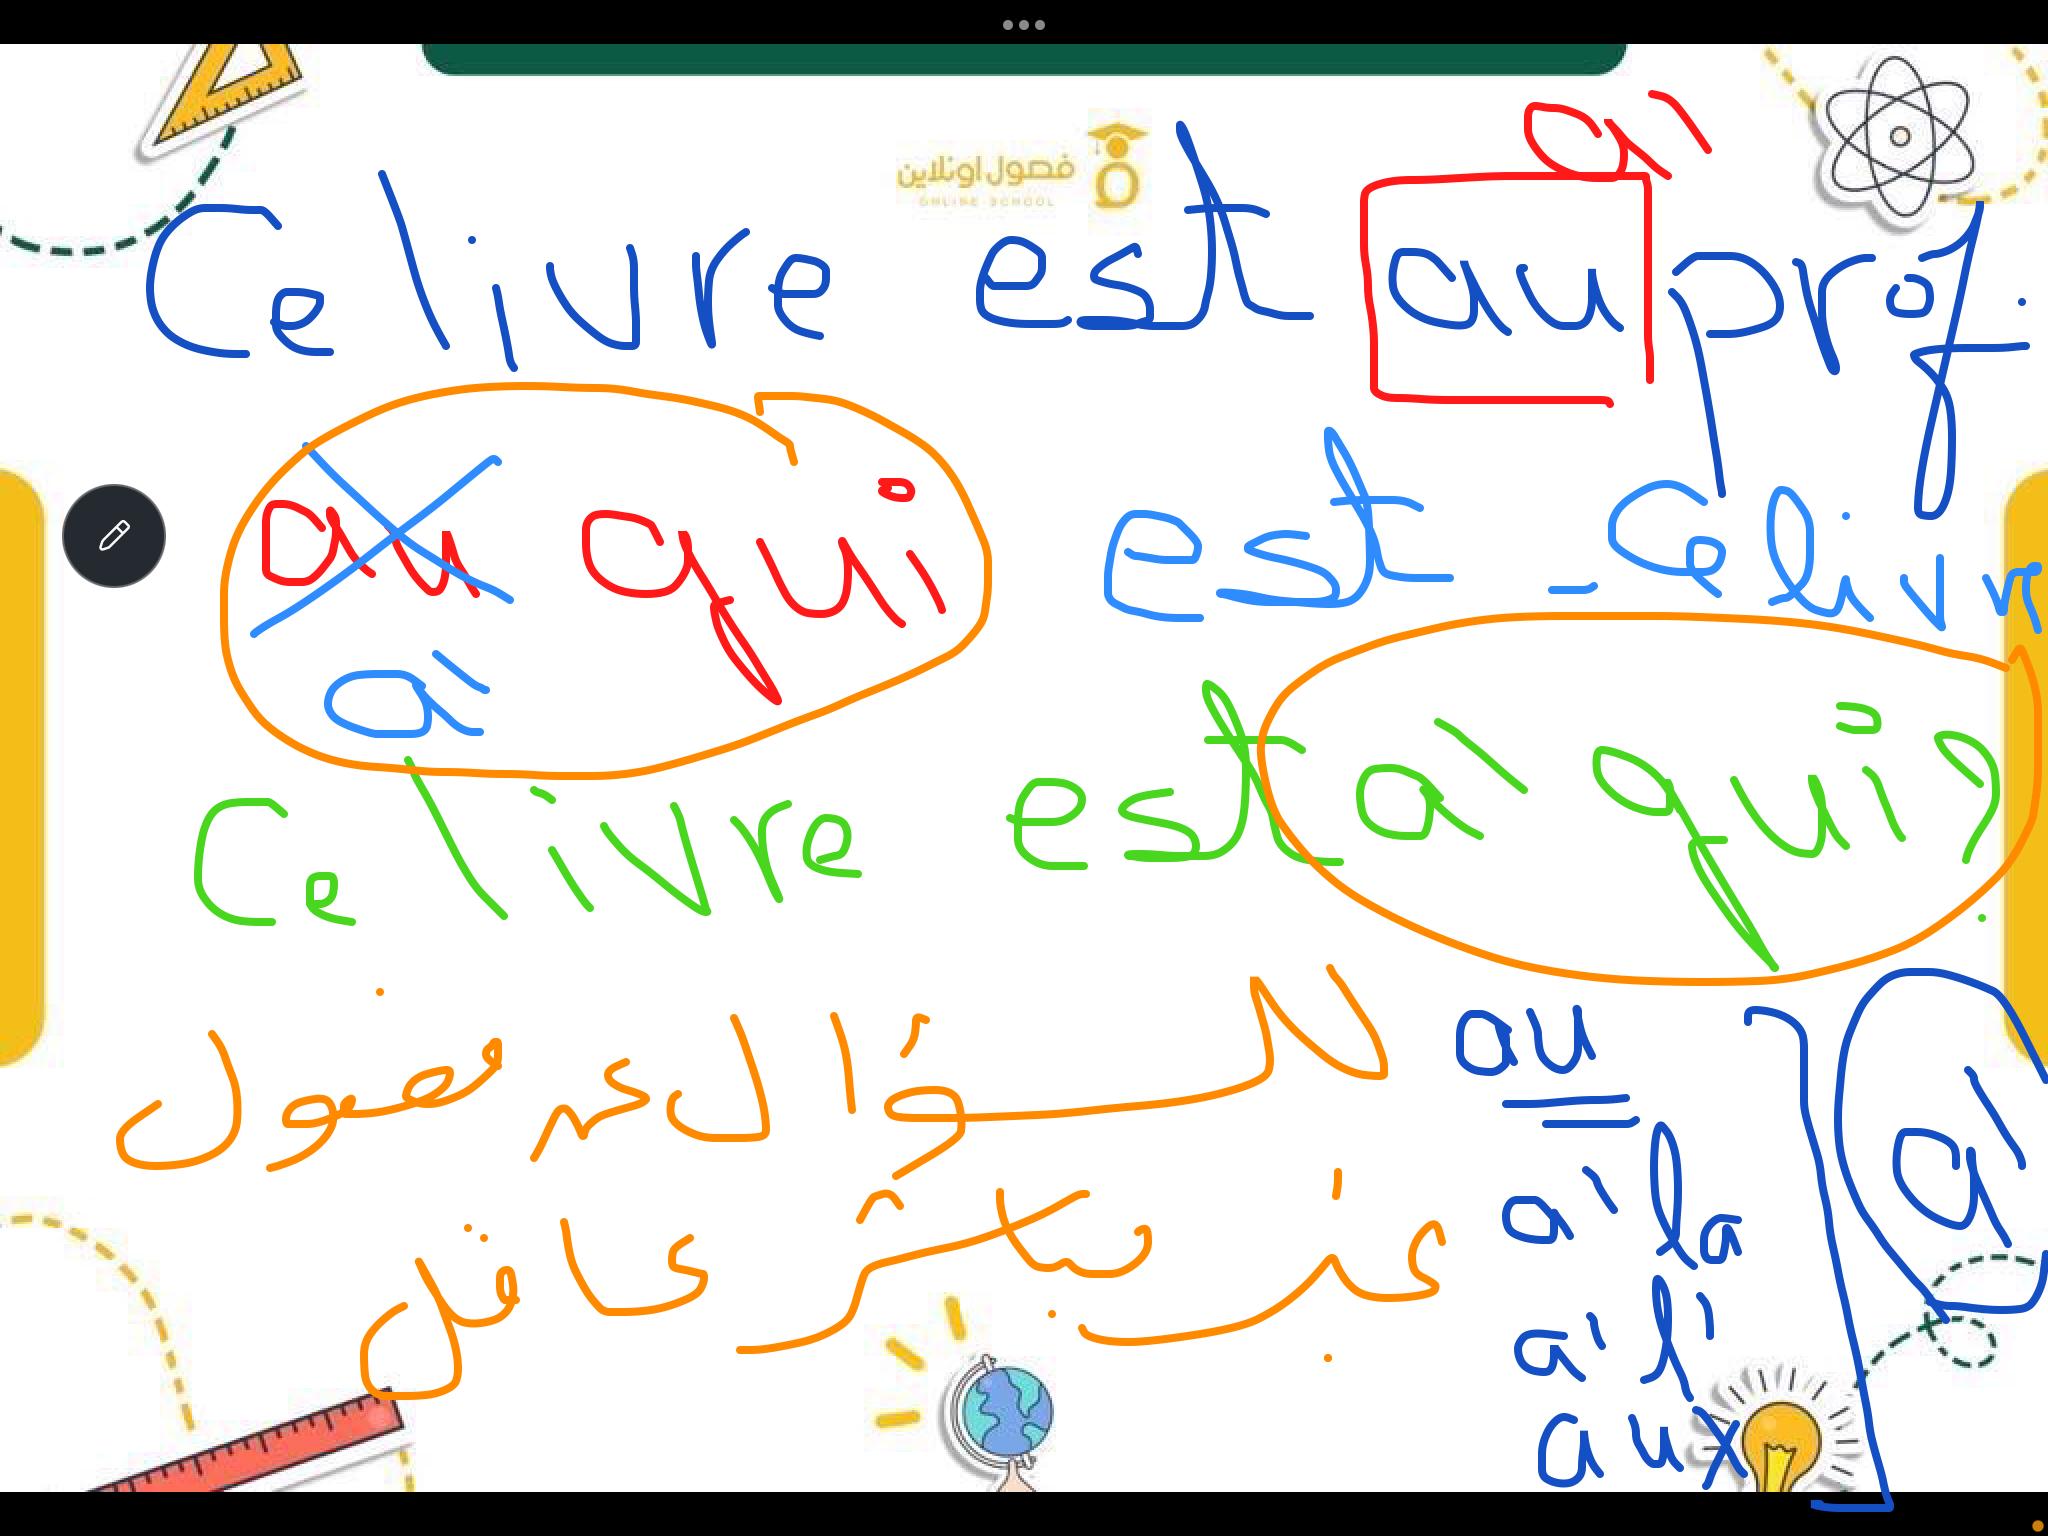 à
فصول اونلاين
ONLINE SCHOOL
Ce livre est au prof.
au qui est - Ce livr
à
Ce livre est à qui?
للسؤال عن مفعول
غير مباشر عاقل
au
à la
à l'
aux
à